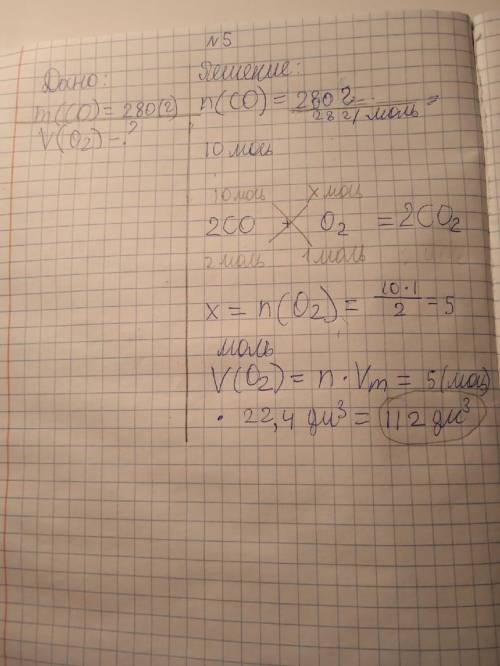 N5
Дано:
m(CO) = 280(г)
V(O₂) - ?
Решение:
n(CO) = 280 г / 28 г/моль =
10 моль
10 моль x моль
2CO + O₂ = 2CO₂
2 моль 1 моль
x = n(O₂) = 10·1 / 2 = 5
моль
V(O₂) = n · Vm = 5(моль)
· 22,4 дм³ = 112 дм³